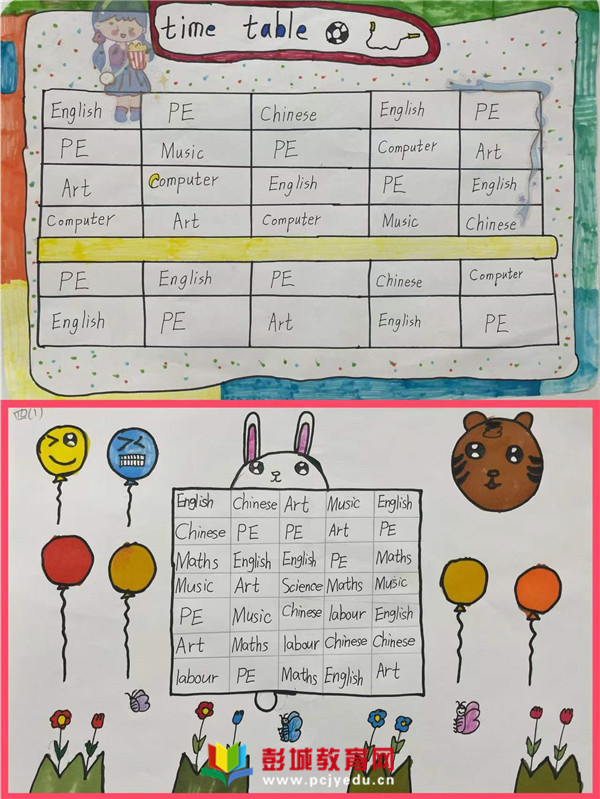 time table
English PE Chinese English PE
PE Music PE Computer Art
Art Computer English PE English
Computer Art Computer Music Chinese
PE English PE Chinese Computer
English PE Art English PE
四(1)
English Chinese Art Music English
Chinese PE PE Art PE
Maths English English PE Maths
Music Art Science Maths Music
PE Music Chinese labour English
Art Maths labour Chinese Chinese
labour PE Maths English Art
彭城教育网
www.pcjyedu.cn